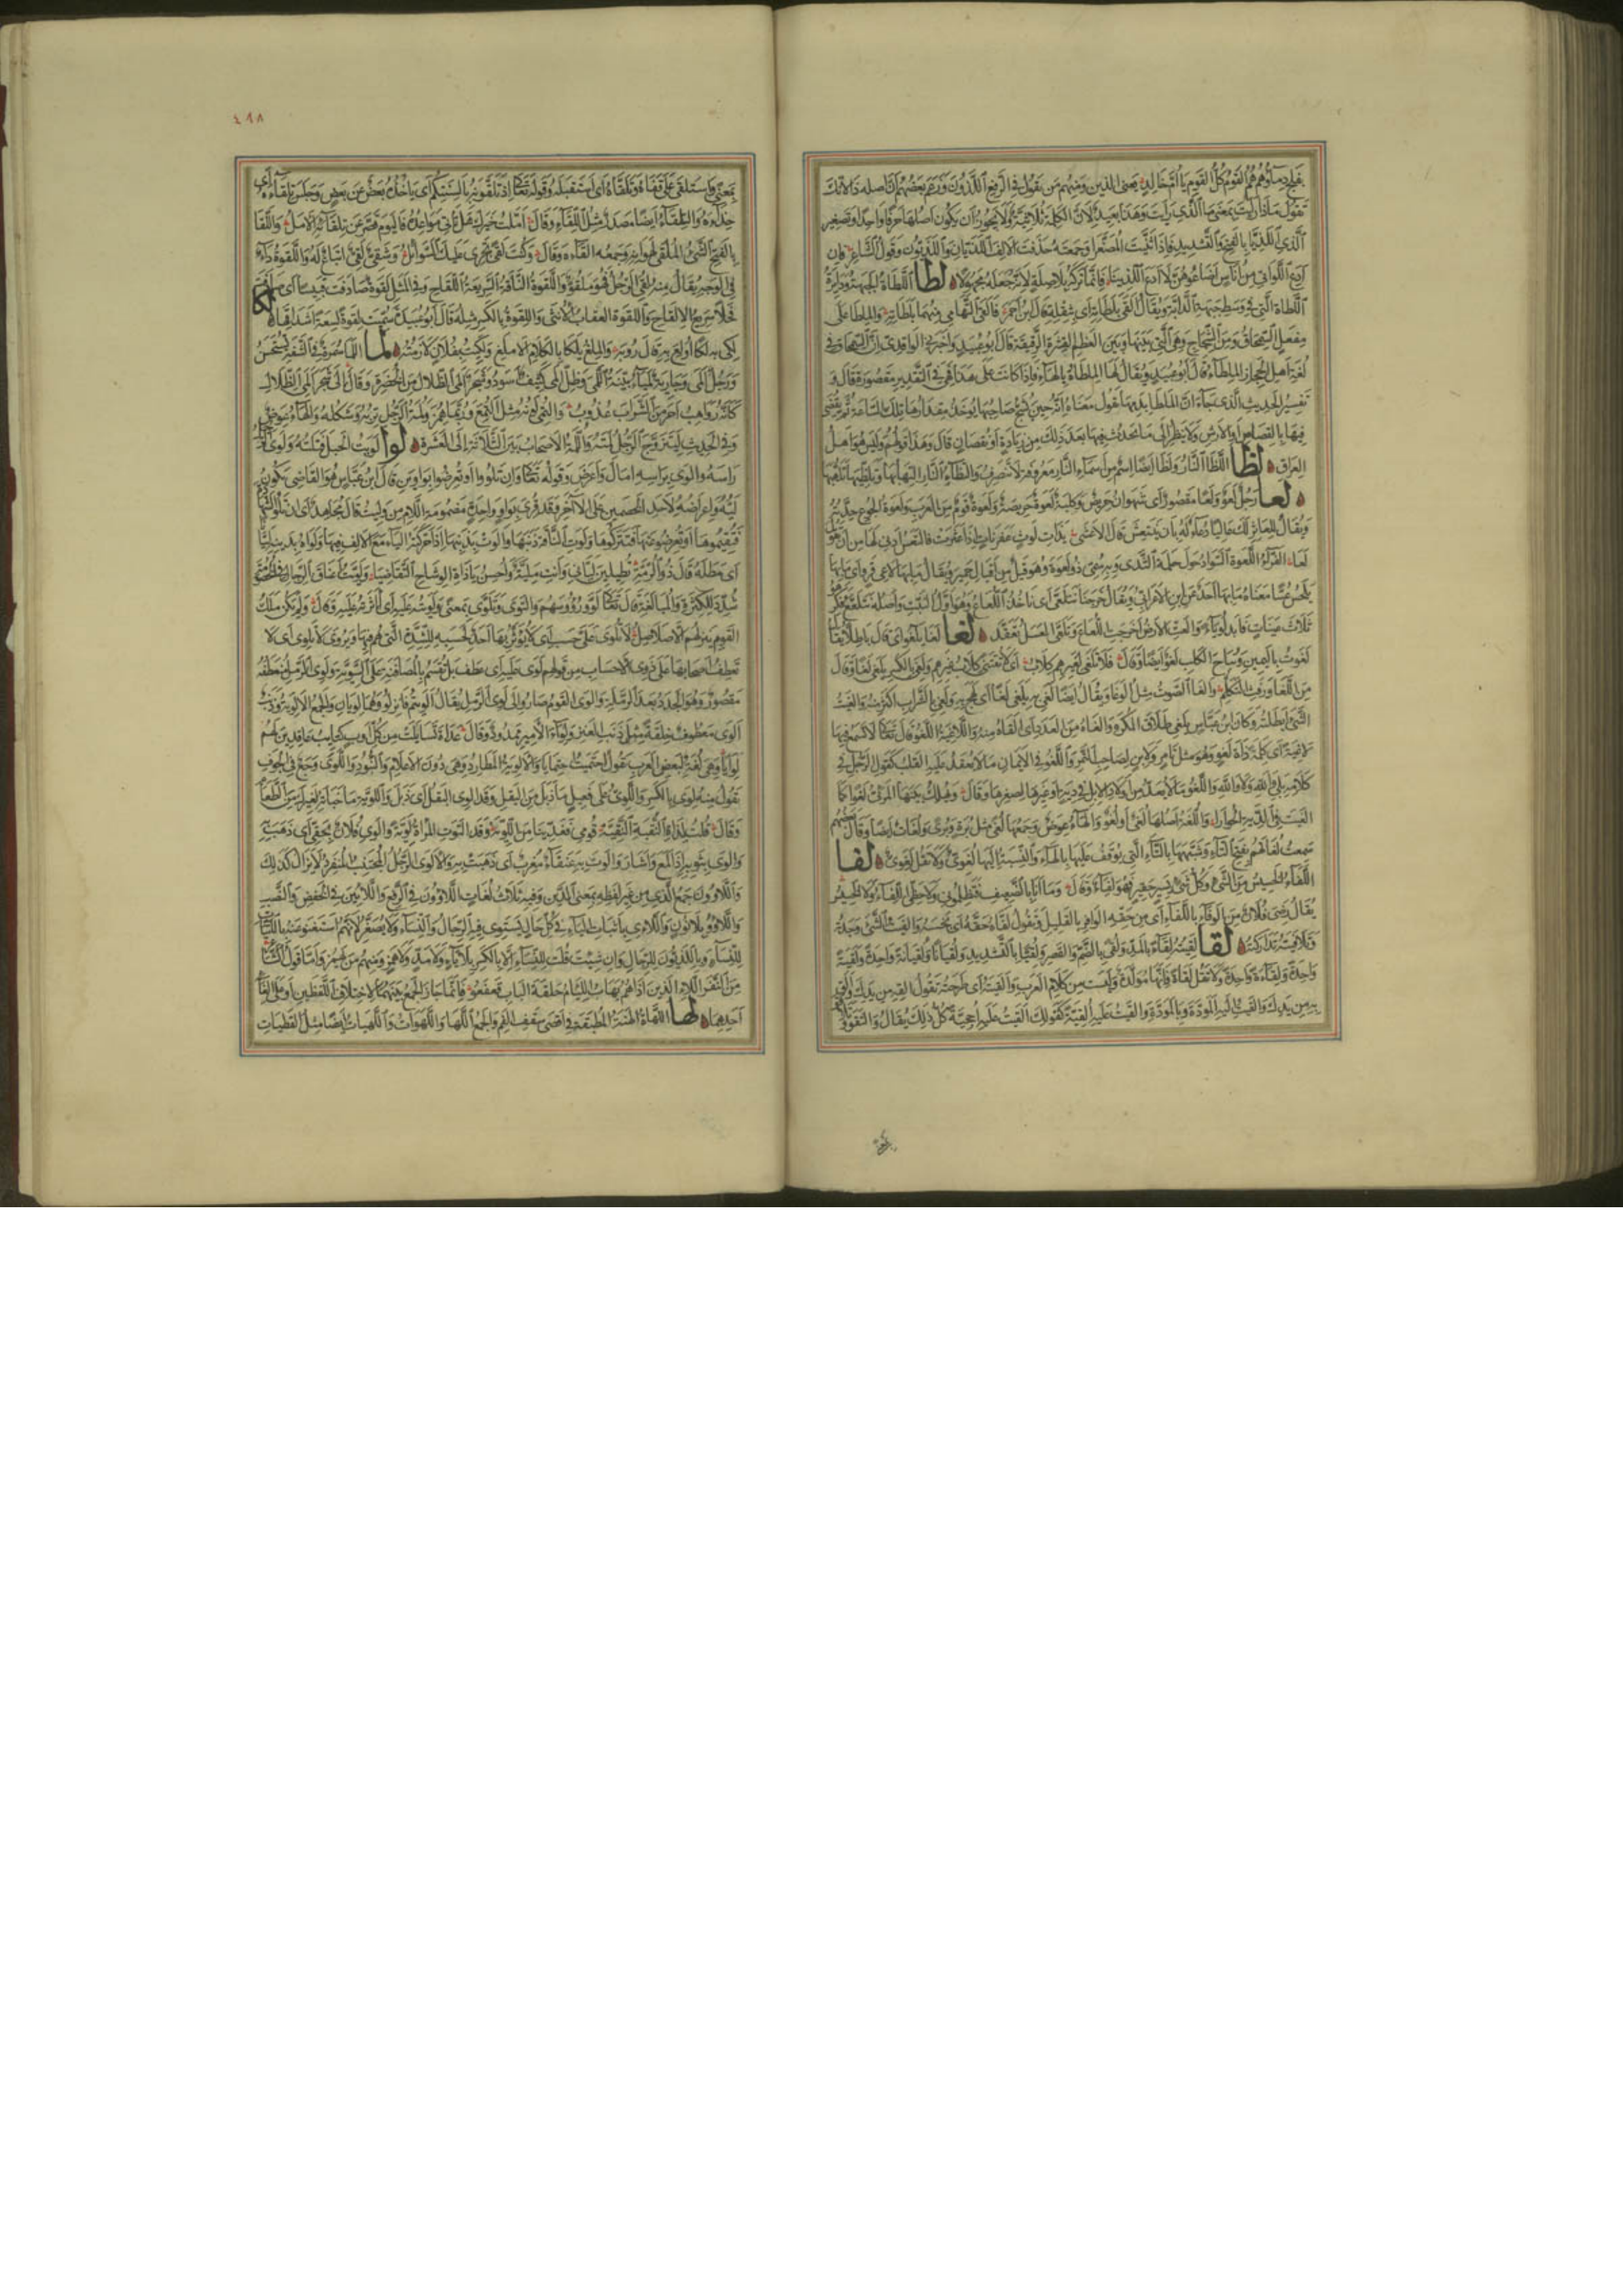 دماؤهم هم القوم كل القوم يا ام خالد يعني الذين ومنهم من يقول في الرفع اللذون وزعم بعضهم ان اصله ذا لانك
تقول ماذا رايت بمعنى ما الذي رايت وهذا بعيد لان الكلمة ثلاثية ولا يجوز ان يكون اصلها حرفا واحدا وتصغير
الذي اللذيا بالفتح والتشديد فاذا ثنيت المصغر او جمعته حذفت الالف اللذيان واللذيون وقول الشاعر فان
ادع اللواتي من اناس اضاعوهن لا ادع اللذينا فانما تركه بلا صلة لانه جعله مجهولا لطا اللطاة الجبهة ودائرة
اللطاة التي في وسط جبهة الدابة ويقال القى بلطاته اي بثقله قال ابن احمر فالقى التهامي منهما بلطاته والملطا على
مفعل السمحاق ومن الشجاج وهي التي بينها وبين العظم القشرة الرقيقة قال ابو عبيد واخبرني الواقدي ان السمحاق في
لغة اهل الحجاز الملطاء قال ابو عبيد ويقال لها الملطاة بالهاء فاذا كانت على هذا فهي في التقدير مقصورة قال و
تفسير الحديث الذي جاء ان الملطا بدمها يقول معناه انه حين يشج صاحبها يؤخذ مقدارها تلك الساعة ثم يقضى
فيها بالقصاص او الارش ولا ينظر الى ما يحدث فيها بعد ذلك من زيادة او نقصان قال وهذا قولهم وليس هو اهل
العراق لظا اللظا النار ولظا ايضا اسم من اسماء النار معرفة لا تنصرف والتظاء النار التهابها وتلظيها تلهبها
لعا رجل لعو ولعا مقصور اي شهوان حريص وكلبة لعوة حريصة ولعوة قوم من العرب ولعوة الجوع حدته
ويقال للعاثر لعا لك عاليا دعاء له بان ينتعش قال الاعشى بذات لوث عفرناة اذا عثرت فالتعس ادنى لها من ان اقول
لعا الفراء اللعوة السواد حول حلمة الثدي وبه سمي ذو لعوة وهو قيل من اقيال حمير ويقال ما بها لاعي قرو اي ما بها
يلحس عسا معناه ما بها احد عن ابن الاعرابي ويقال خرجنا نتلعى اي ناخذ اللعاع وهو اول النبت واصله نتلعع فكرهوا
ثلاث عينات فابدلوا ياء والعت الارض اخرجت اللعاع وتلعى العسل تعقد لغا لغا يلغوا اي قال باطلا يقال
لغوت باليمين ونباح الكلب لغو ايضا وقال فلا تلغى لغيرهم كلاب اي لا تقتني كلاب غيرهم ولغي بالكسر يلغى لغا وقال
من اللغا ورفث التكلم واللغا الصوت مثل الوغا ويقال ايضا لغي به يلغى لغا اي لهج به ولغي بالشراب اكثر منه والغيت
الشيء ابطلته وكان ابن عباس يلغي طلاق المكره والغاه من العدد اي القاه منه واللاغية اللغو قال تعالى لا تسمع فيها
لاغية اي كلمة ذات لغو وهو مثل تامر ولابن لصاحب التمر واللبن واللغو في الايمان ما لا يعقد عليه القلب كقول الرجل في
كلامه بلى والله ولا والله واللغو ما لا يعد من اولاد الابل في دية او غيرها لصغرها وقال ويهلك بينها المرئي لغوا كما
الغيت في الدية الحوارا واللغة اصلها لغي او لغو والهاء عوض وجمعها لغى مثل برة وبرى ولغات ايضا وقال بعضهم
سمعت لغاتهم بفتح التاء وشبهها بالتاء التي يوقف عليها بالهاء والنسبة اليها لغوي ولا تقل لغوي لفا
اللفاء الخسيس من الشيء وكل شيء يسير حقير فهو لفاء وقال وما انا بالضعيف فتظلموني ولا حظي اللفاء ولا الخسيس
يقال رضي فلان من الوفاء باللفاء اي من حقه الوافر بالقليل وتقول لفاه حقه اي بخسه والفيت الشيء وجدته
وتلافيته تداركته لقا لقيته لقاء بالمد ولقى بالضم والقصر ولقيا بالتشديد ولقيانا ولقيانة واحدة ولقية
واحدة ولقاءة واحدة ولا تقل لقاة فانها مولدة وليست من كلام العرب والقيته اي طرحته تقول القه من يدك والق
به من يدك والقيت اليه المودة وبالمودة والقيت عليه القية كقولك القيت عليه احجية كل ذلك يقال والتقوا وتلاقوا
٤٩٨
بمعنى واستلقى على قفاه وتلقاه اي استقبله وقوله تعالى اذ تلقونه بالسنتكم اي ياخذ بعض عن بعض وجلس تلقاءه اي
حذاءه والتلقاء ايضا مصدر مثل اللقاء وقال املت خيرك هل تاتي مواعده فاليوم قصر عن تلقائه الامل واللقا
بالفتح الشيء الملقى لهوانه وجمعه القاء وقال وكنت لقى تجري عليك السوائل وشقي لقي اتباع له واللقوة داء
في الوجه يقال منه لقي الرجل فهو ملقو واللقوة الناقة السريعة اللقاح وفي المثل لقوة صادفت قبيسا اي صادفت
فحلا سريع الالقاح واللقوة العقاب الانثى واللقوة بالكسر مثله قال ابو عبيد سميت لقوة لسعة اشداقها لكا
لكي به لكا اولع به قال رؤبة والملغ يلكا بالكلام الاملغ ولكيت بفلان لازمته لما اللما سمرة في الشفة تستحسن
ورجل المى وجارية لمياء بينة اللمى وظل المى كثيف اسود وشجر المى الظلال من الخضرة وقال الى شجر المى الظلال
كانه رواهب احرمن الشراب عذوب والتمي لونه مثل التمع وربما همز ولمة الرجل تربه وشكله والهاء عوض
وفي الحديث ليتزوج الرجل لمته واللمة الاصحاب بين الثلاثة الى العشرة لوا لويت الحبل فتلته ولوى الرجل
راسه والوى براسه امال واعرض وقوله تعالى وان تلووا او تعرضوا بواوين قال ابن عباس هو القاضي يكون
ليه واعراضه لاحد الخصمين على الاخر وقد قرئ بواو واحدة مضمومة اللام من وليت قال مجاهد اي ان تلوا الشهادة
فتقيموها او تعرضوا عنها فتتركوها ولوت الناقة ذنبها والوت بذنبها اذا حركته الياء مع الالف فيها ولواه بدينه ليا
اي مطله قال ذو الرمة تطيلين لياني وانت ملية واحسن يا ذات الوشاح التقاضيا ولويت اعناق الرجال في الخصومة
شدد للكثرة والمبالغة قال تعالى لووا رؤوسهم والتوى وتلوى بمعنى ولويت عليه اي اثرته عليه وقال ولم يكن ملك
القوم ينزلهم الا صلاصل لا تلوى على حسب اي لا يؤثر بها احد لحسبه للشدة التي هم فيها ويروى لا تلوي اي لا
تعطف اصحابها على ذوي الاحساب من قولهم لوى عليه اي عطف بل تقسم بالمصافنة على السوية ولوى الرمل منقطعه
مقصور وهو الجدد بعد الرملة والوى القوم صاروا الى لوى الرمل يقال الويتم فانزلوا وهما لويان والجمع الالوية وذنب
الوى معطوف خلقة مثل ذنب العنز ولواء الامير ممدود وقال غداة تسايلت من كل اوب كتائب عاقدين لهم
لوايا وهي لغة لبعض العرب تقول احتميت احتمايا والالوية المطارد وهي دون الاعلام والبنود واللوى وجع في الجوف
تقول منه لوي بالكسر واللوي على فعيل ما ذبل من البقل وقد الوى البقل اي ذبل واللوية ما خبأته لغيرك من الطعام
وقال قلت لذات النقبة النقية قومي فغدينا من اللوية وقد التوت المراة لوية والوى فلان بحقي اي ذهب به
والوى بثوبه اذا لمع واشار والوت به عنقاء مغرب اي ذهبت به والالوى الرجل المجتنب المنفرد لا يزال كذلك
واللاؤون جمع الذي من غير لفظه بمعنى الذين وفيه ثلاث لغات اللاؤون في الرفع واللائين في الخفض والنصب
واللاؤو بلا نون واللاءي باثبات الياء في كل حال يستوي فيه الرجال والنساء ولا يصغر لانهم استغنوا عنه باللتيات
للنساء وباللذيون للرجال وان شئت قلت للنساء اللاء بالكسر بلا ياء ولا مد ولا همز ومنهم من يهمز واما قول الشاعر
من النفر اللاء الذين اذا هم يهاب اللئام حلقة الباب قعقعوا فانما جاز الجمع بينهما لاختلاف اللفظين او على الغاء
احدهما لها اللهاة الهنة المطبقة في اقصى سقف الفم والجمع اللها واللهوات واللهيات ايضا مثل القطيات